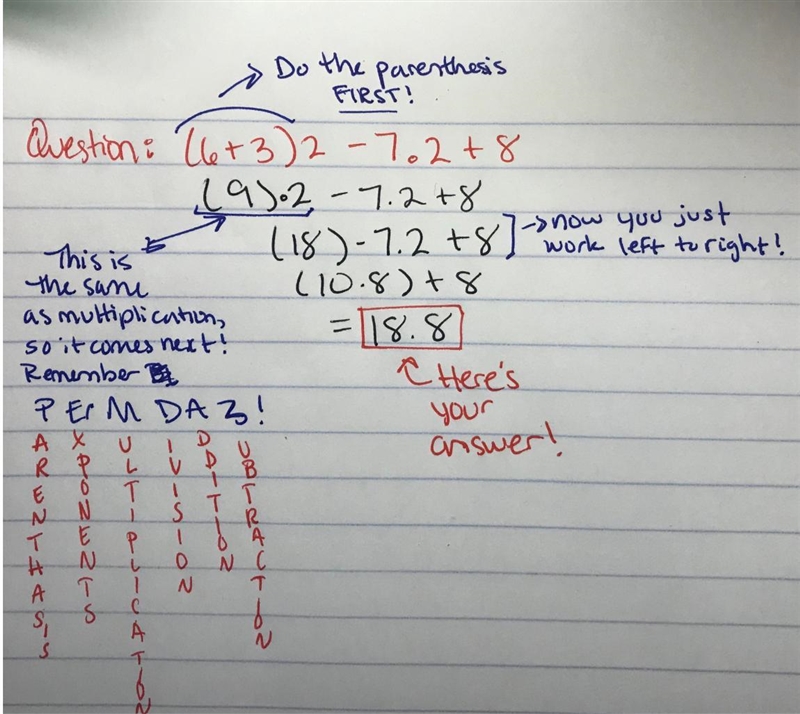 Do the parenthesis
FIRST!
Question: (6+3)2 - 7.2 + 8
(9)·2 - 7.2 + 8
(18) - 7.2 + 8] → now you just
work left to right!
This is
the same
as multiplication,
so it comes next!
Remember
(10.8) + 8
= 18.8
Here's
your
answer!
P E M D A S!
ARENTHASIS
XPONENTS
ULTIPLICATION
IVISION
DDITION
UBTRACTION